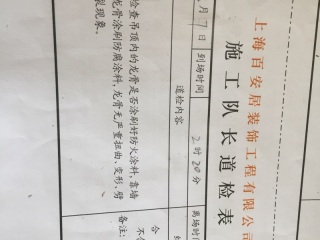 上海百安居装饰工程有限公司
施工队长道检表
月7日
到场时间
2时20分
离场时间
道检内容
检查吊顶内的龙骨是否涂刷好防火涂料,靠墙
龙骨涂刷防腐涂料,龙骨无严重扭曲、变形、劈
裂现象。
合
不
备注: